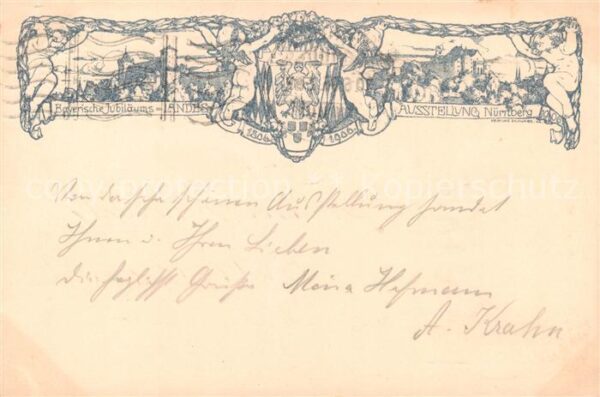 Bayerische Jubiläums-LANDES
AUSSTELLUNG Nürnberg
1806 1906
Von der sehr schönen Ausstellung sendet
Ihnen u. Ihren Lieben
die herzlichsten Grüße Maria Hofmann
A. Krahn